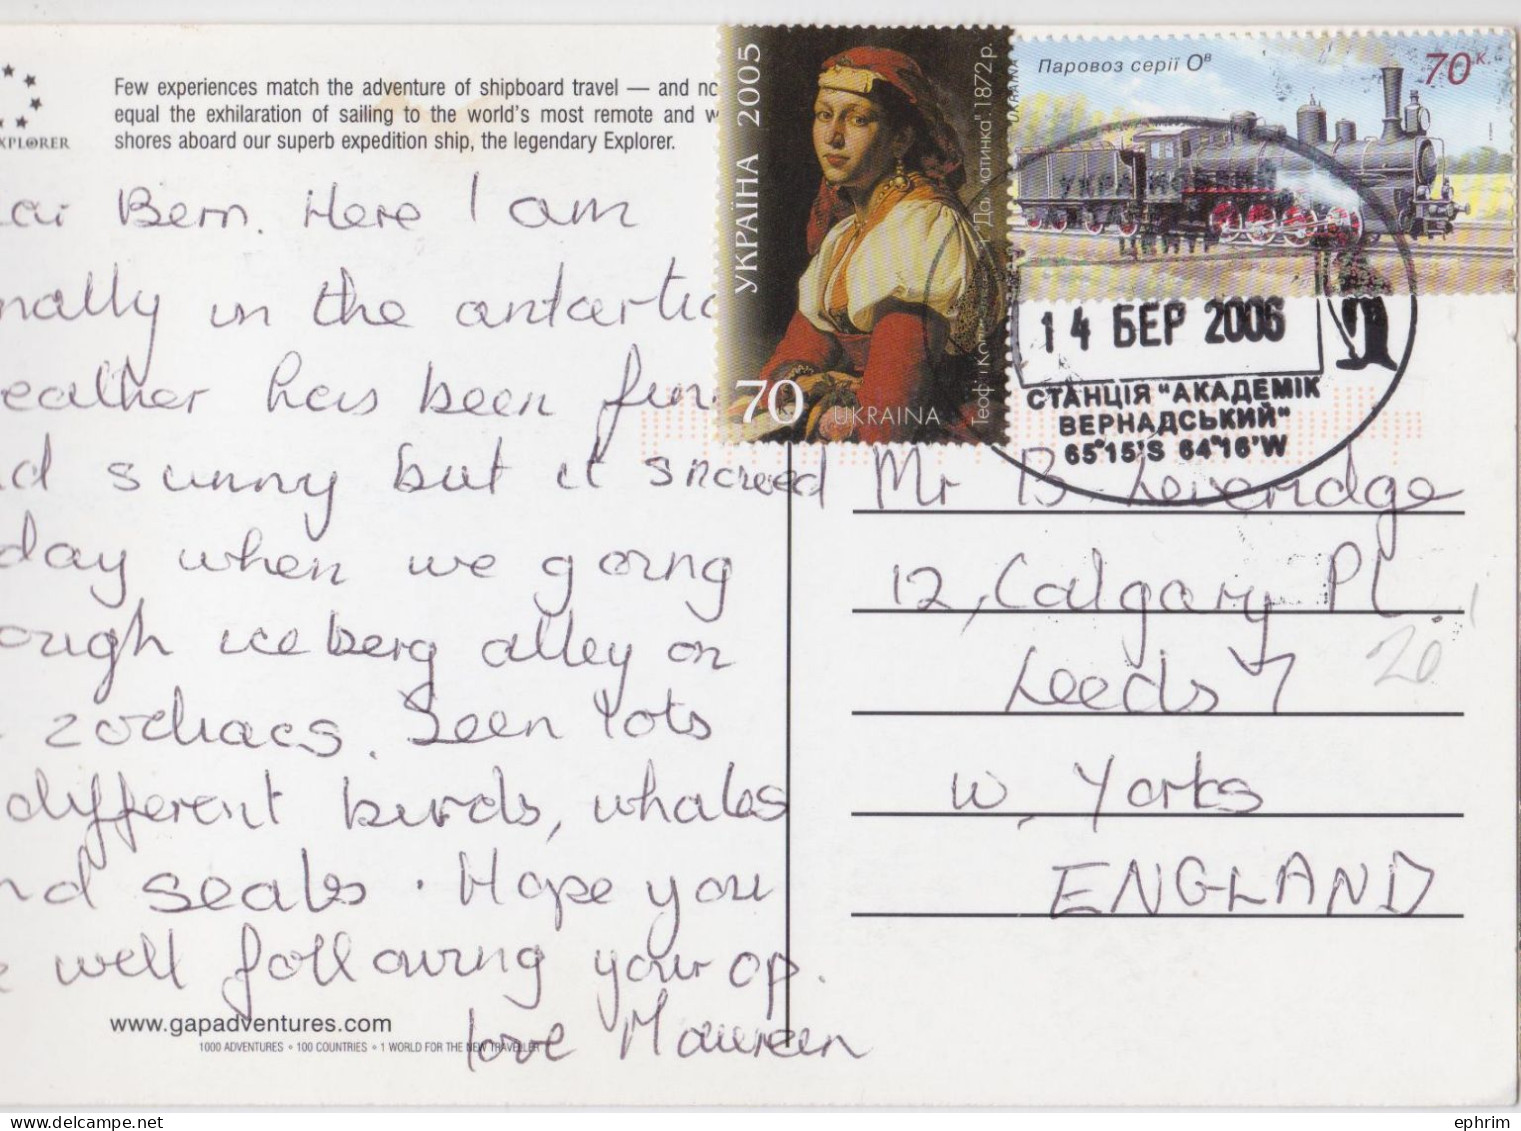 Few experiences match the adventure of shipboard travel — and no
equal the exhilaration of sailing to the world's most remote and w
shores aboard our superb expedition ship, the legendary Explorer.
XPLORER
ear Bern. Here I am
inally in the antartic
eather has been fun
nd sunny but it snowed
day when we going
ough iceberg alley on
zodiacs. Seen lots
different burds, whales
nd seals. Hope you
e well following your op.
love Maureen
www.gapadventures.com
1000 ADVENTURES • 100 COUNTRIES • 1 WORLD FOR THE NEW TRAVELLER
УКРАЇНА 2005
70
UKRAINA
"Далматинка". 1872 р.
Паровоз серії Oв
70 К.
UKRAINA
14 БЕР 2006
СТАНЦІЯ "АКАДЕМІК
ВЕРНАДСЬКИЙ"
65°15'S 64°16'W
Mr B Leveridge
12, Calgary Pl.
Leeds 7
W, Yorks
ENGLAND
20
ephrim